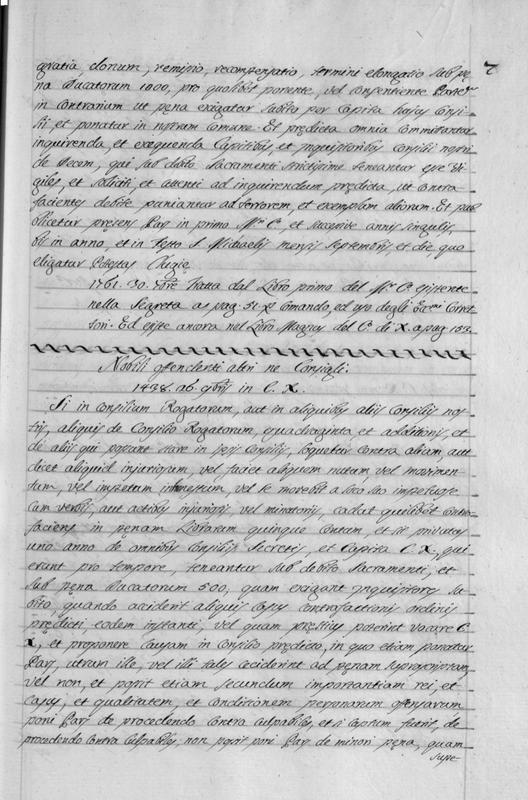 7
gratia, donum, remissio, recompensatio, termini elongatio sub pę-
na Ducatorum 1000, pro quolibet ponente, vel consentiente Partem
in contrarium ut pęna exigatur subito per Capita hujus Consi-
lii, et ponatur in nostram comune. Et prędicta omnia Committantur
inquirenda, et exequenda Capitibus, et Inquisitoribus Consilii nostri
de Decem, qui sub debito Sacramenti strictissime teneantur esse Vi-
giles, et soliciti, et attenti ad inquirendum prędicta, ut contra
facientes debite puniantur ad terrorem, et exemplum aliorum. Et pub-
blicetur presens Pars in primo Mr. C.º, et successive annis singulis
bis in anno, et in Festo S. Michaelis mensis Septembris, et die, quo
eligatur Potestas Clugię
1761. 30. 9bre Tratta dal Libro primo del Mr. C.º esistente
nella Segreta a pag. 51. per Comando, ed uso degli Ecc.mi Corret-
tori. Ed esiste ancora nel Libro Magnus del C.º di X. a pag. 153.
Nobili offendenti altri ne Consigli
1438. 26. 9bris in C. X.
Si in Consilium Rogatorum, aut in aliquibus aliis Consiliis nos-
tris, aliquis de Consilio Rogatorum, quadraginta, et additionis, et
de aliis qui possunt stare in ipsis Consiliis, loquetur contra alium, aut
dicet aliquid injuriosum, vel faciet aliquem notam, vel movimen-
tum, vel impetum inhonestum, vel se movebit a loco suo impetuose
cum verbis, aut actibus injuriosis vel minatoriis, cadat quilibet contra-
faciens in pęnam Librarum quinque centum, et sit privatus
uno anno de omnibus Consiliis Secretis, et Capita C. X., qui
erunt pro tempore, teneantur sub debito Sacramenti, et
sub pęna Ducatorum 500, quam exigant Inquisitores su-
bito, quando acciderit aliquis Casus contrafactionis ordinis
prędicti, eodem instanti, vel quam pręstius poterint vocare C.
X., et proponere Causam in Consilio prędicto, in quo etiam ponatur
Pars, utrum ille, vel illi tales ceciderint ad pęnam suprascriptam,
vel non, et possit etiam secundum importantiam rei, et
casus, et qualitatem, et conditionem personarum offensarum
poni Pars de procedendo contra culpabiles, et si captum fuerit, de
procedendo contra culpabiles, non possit poni Pars de minori pęna, quam
supe-